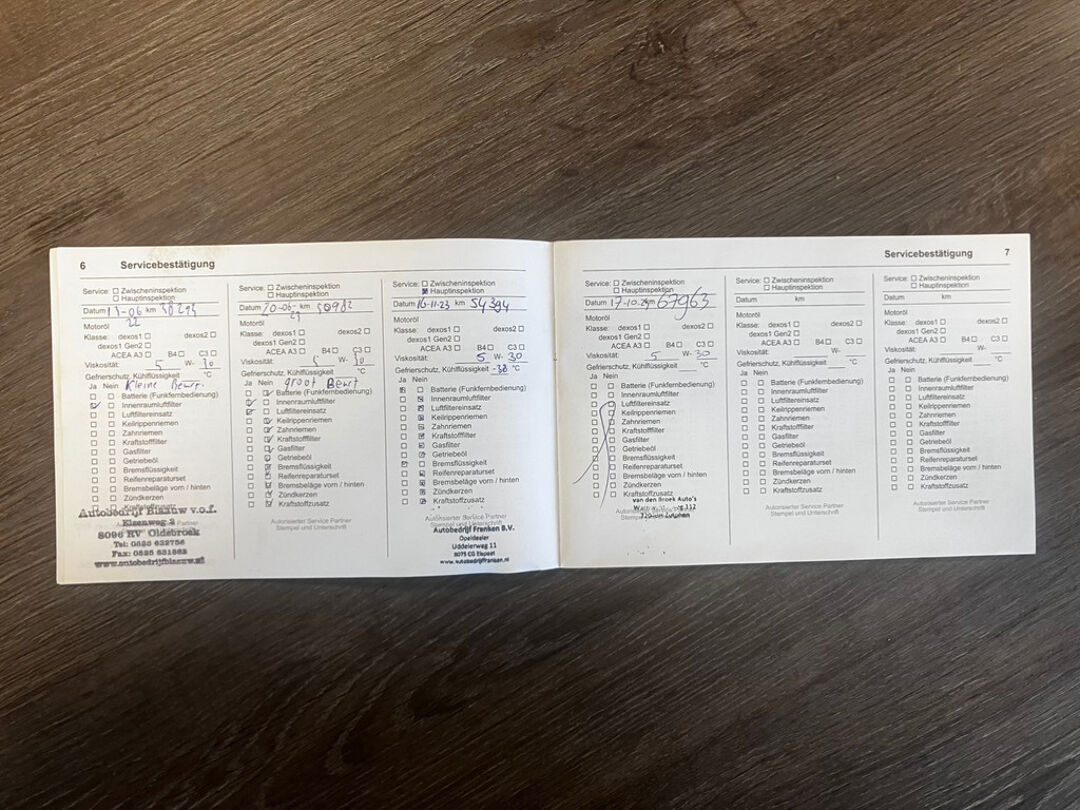 6 Servicebestätigung
Service: Zwischeninspektion
Hauptinspektion
Datum 13-06 km
22
Motoröl
Klasse: dexos1 dexos2
dexos1 Gen2
ACEA A3 B4 C3
Viskosität: 5 W- 30
Gefrierschutz, Kühlflüssigkeit °C
Ja Nein Kleine Beurt.
Batterie (Funkfernbedienung)
Innenraumluftfilter
Luftfiltereinsatz
Keilrippenriemen
Zahnriemen
Kraftstofffilter
Gasfilter
Getriebeöl
Bremsflüssigkeit
Reifenreparaturset
Bremsbeläge vorn / hinten
Zündkerzen
Kraftstoffzusatz
Autobedrijf Blaauw v.o.f.
Eisenweg 2
8096 RV Oldebroek
Tel: 0525 632756
Fax: 0525 631562
www.autobedrijfblaauw.nl
Service: Zwischeninspektion
Hauptinspektion
Datum 20-06- km 50982
Motoröl
Klasse: dexos1 dexos2
dexos1 Gen2
ACEA A3 B4 C3
Viskosität: 5 W- 30
Gefrierschutz, Kühlflüssigkeit °C
Ja Nein groot Beurt
Batterie (Funkfernbedienung)
Innenraumluftfilter
Luftfiltereinsatz
Keilrippenriemen
Zahnriemen
Kraftstofffilter
Gasfilter
Getriebeöl
Bremsflüssigkeit
Reifenreparaturset
Bremsbeläge vorn / hinten
Zündkerzen
Kraftstoffzusatz
Autorisierter Service Partner
Stempel und Unterschrift
Service: Zwischeninspektion
Hauptinspektion
Datum 16-11-23 km 54394
Motoröl
Klasse: dexos1 dexos2
dexos1 Gen2
ACEA A3 B4 C3
Viskosität: 5 W- 30
Gefrierschutz, Kühlflüssigkeit -38 °C
Ja Nein
Batterie (Funkfernbedienung)
Innenraumluftfilter
Luftfiltereinsatz
Keilrippenriemen
Zahnriemen
Kraftstofffilter
Gasfilter
Getriebeöl
Bremsflüssigkeit
Reifenreparaturset
Bremsbeläge vorn / hinten
Zündkerzen
Kraftstoffzusatz
Autorisierter Service Partner
Stempel und Unterschrift
Autobedrijf Franken B.V.
Opeldealer
Uddelerweg 11
8075 CG Elspeet
www.autobedrijffranken.nl
Servicebestätigung 7
Service: Zwischeninspektion
Hauptinspektion
Datum 17-10-24 km 67963
Motoröl
Klasse: dexos1 dexos2
dexos1 Gen2
ACEA A3 B4 C3
Viskosität: 5 W- 30
Gefrierschutz, Kühlflüssigkeit °C
Ja Nein
Batterie (Funkfernbedienung)
Innenraumluftfilter
Luftfiltereinsatz
Keilrippenriemen
Zahnriemen
Kraftstofffilter
Gasfilter
Getriebeöl
Bremsflüssigkeit
Reifenreparaturset
Bremsbeläge vorn / hinten
Zündkerzen
Kraftstoffzusatz
van den Broek Auto's
112
Zutphen
Service: Zwischeninspektion
Hauptinspektion
Datum km
Motoröl
Klasse: dexos1 dexos2
dexos1 Gen2
ACEA A3 B4 C3
Viskosität: W-
Gefrierschutz, Kühlflüssigkeit °C
Ja Nein
Batterie (Funkfernbedienung)
Innenraumluftfilter
Luftfiltereinsatz
Keilrippenriemen
Zahnriemen
Kraftstofffilter
Gasfilter
Getriebeöl
Bremsflüssigkeit
Reifenreparaturset
Bremsbeläge vorn / hinten
Zündkerzen
Kraftstoffzusatz
Autorisierter Service Partner
Stempel und Unterschrift
Service: Zwischeninspektion
Hauptinspektion
Datum km
Motoröl
Klasse: dexos1 dexos2
dexos1 Gen2
ACEA A3 B4 C3
Viskosität: W-
Gefrierschutz, Kühlflüssigkeit °C
Ja Nein
Batterie (Funkfernbedienung)
Innenraumluftfilter
Luftfiltereinsatz
Keilrippenriemen
Zahnriemen
Kraftstofffilter
Gasfilter
Getriebeöl
Bremsflüssigkeit
Reifenreparaturset
Bremsbeläge vorn / hinten
Zündkerzen
Kraftstoffzusatz
Autorisierter Service Partner
Stempel und Unterschrift